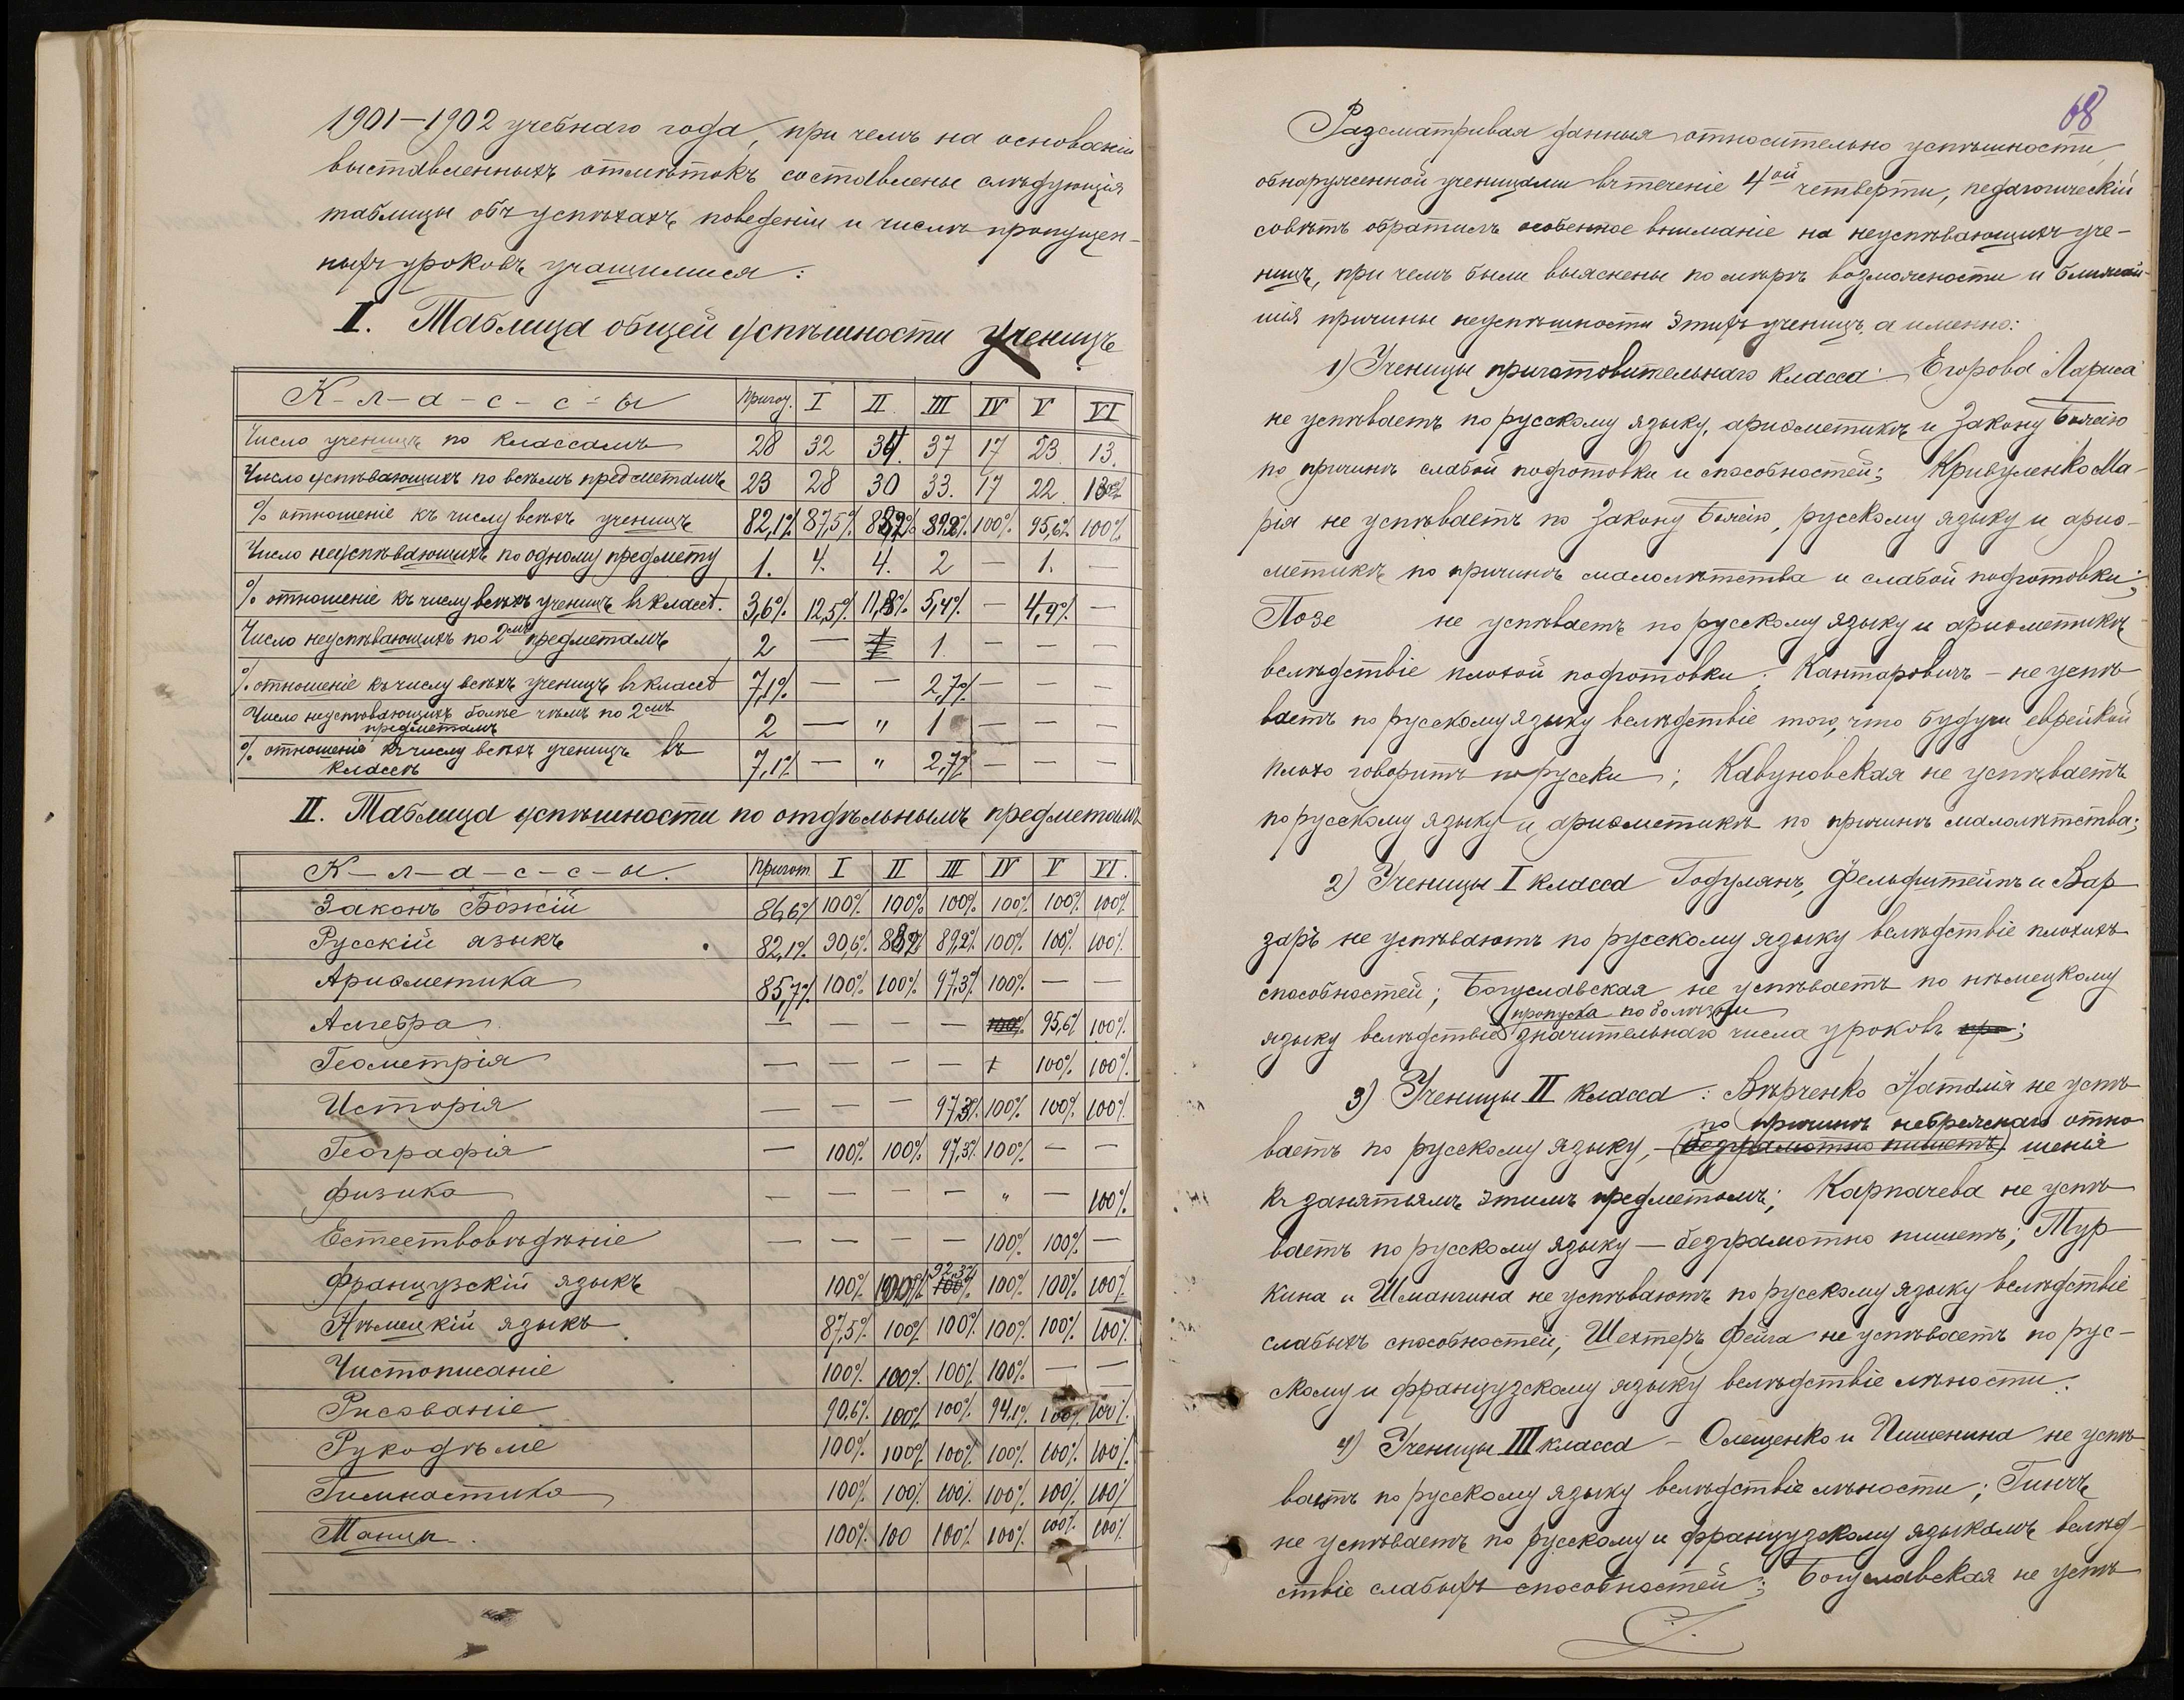 1901—1902 учебнаго года, при чемъ на основаніи
выставленныхъ отмѣтокъ составлены слѣдующія
таблицы объ успѣхахъ, поведеніи и числѣ пропущен-
ныхъ уроковъ учащимися:
I. Таблица общей успѣшности ученицъ
К-л-а-с-с-ы Пригот. I II III IV V VI
Число ученицъ по классамъ 28 32 34. 37 17 23 13.
Число успѣвающихъ по всѣмъ предметамъ 23 28 30 33. 17 22 13
% отношеніе къ числу всѣхъ ученицъ 82,1% 87,5% 88,2% 89,2% 100% 95,6% 100%
Число неуспѣвающихъ по одному предмету 1. 4. 4. 2 — 1. —
% отношеніе къ числу всѣхъ ученицъ въ класс. 3,6% 12,5% 11,8% 5,4% — 4,4% —
Число неуспѣвающихъ по 2мъ предметамъ 2 — 1 — — —
% отношеніе къ числу всѣхъ ученицъ въ класс 7,1% — — 2,7% — — —
Число неуспѣвающихъ болѣе чѣмъ по 2мъ
предметамъ 2 — " 1 — — —
% отношеніе къ числу всѣхъ ученицъ въ
классѣ 7,1% — " 2,7% — — —
II. Таблица успѣшности по отдѣльнымъ предметамъ
К-л-а-с-с-ы. Пригот. I II III IV V VI.
Законъ Божій 86,6% 100% 100% 100% 100% 100% 100%
Русскій языкъ 82,1% 90,6% 88,2% 89,2% 100% 100% 100%
Ариѳметика 85,7% 100% 100% 97,3% 100% — —
Алгебра — — — — 100% 95,6% 100%
Геометрія — — — — + 100% 100%
Исторія — — — 97,3% 100% 100% 100%
Географія — 100% 100% 97,3% 100% — —
Физика — — — — " — 100%
Естествовѣдѣніе — — — — 100% 100% —
Французскій языкъ 100% 100% 100% 92,3% 100% 100% 100%
Нѣмецкій языкъ 87,5% 100% 100% 100% 100% 100%
Чистописаніе 100% 100% 100% 100% — —
Рисованіе 90,6% 100% 100% 94,1% 100% 100%
Рукодѣліе 100% 100% 100% 100% 100% 100%
Гимнастика 100% 100% 100% 100% 100% 100%
Танцы. 100% 100 100% 100% 100% 100%
68
Разсматривая данныя относительно успѣшности,
обнаруженной ученицами въ теченіе 4ой четверти, педагогическій
совѣтъ обратилъ особенное вниманіе на неуспѣвающихъ уче-
ницъ, при чемъ были выяснены по мѣрѣ возможности и ближай-
шія причины неуспѣшности этихъ ученицъ, а именно:
1) Ученицы приготовительнаго класса Егорова Лариса
не успѣваетъ по русскому языку, ариѳметикѣ и Закону Божію
по причинѣ слабой подготовки и способностей; Кривуленко Ма-
рія не успѣваетъ по Закону Божію, русскому языку и ариѳ-
метикѣ по причинѣ малолѣтства и слабой подготовки;
Позе не успѣваетъ по русскому языку и ариѳметикѣ
вслѣдствіе плохой подготовки; Кантаровичъ - не успѣ-
ваетъ по русскому языку вслѣдствіе того, что будучи еврейкой
плохо говоритъ по русски; Кавуновская не успѣваетъ
по русскому языку и ариѳметикѣ по причинѣ малолѣтства;
2) Ученицы I класса Годулянъ, Фельдштейнъ и Вар-
заръ не успѣваютъ по русскому языку вслѣдствіе плохихъ
способностей; Богуславская не успѣваетъ по нѣмецкому
пропуска по болѣзни
языку вслѣдствіе значительнаго числа уроковъ про;
3) Ученицы II класса: Вѣрченко Наталія не успѣ-
по причинѣ небрежнаго отно-
ваетъ по русскому языку, — (безграмотно пишетъ) шенія
къ занятьямъ этимъ предметомъ; Карпачева не успѣ-
ваетъ по русскому языку — безграмотно пишетъ; Тур-
кина и Шмангина не успѣваютъ по русскому языку вслѣдствіе
слабыхъ способностей; Шехтеръ Фейга не успѣваетъ по рус-
скому и французскому языку вслѣдствіе лѣности.
4) Ученицы III класса - Олещенко и Пишенина не успѣ-
ваютъ по русскому языку вслѣдствіе лѣности; Гинчъ
не успѣваетъ по русскому и французскому языкамъ вслѣд-
ствіе слабыхъ способностей; Богуславская не успѣ-